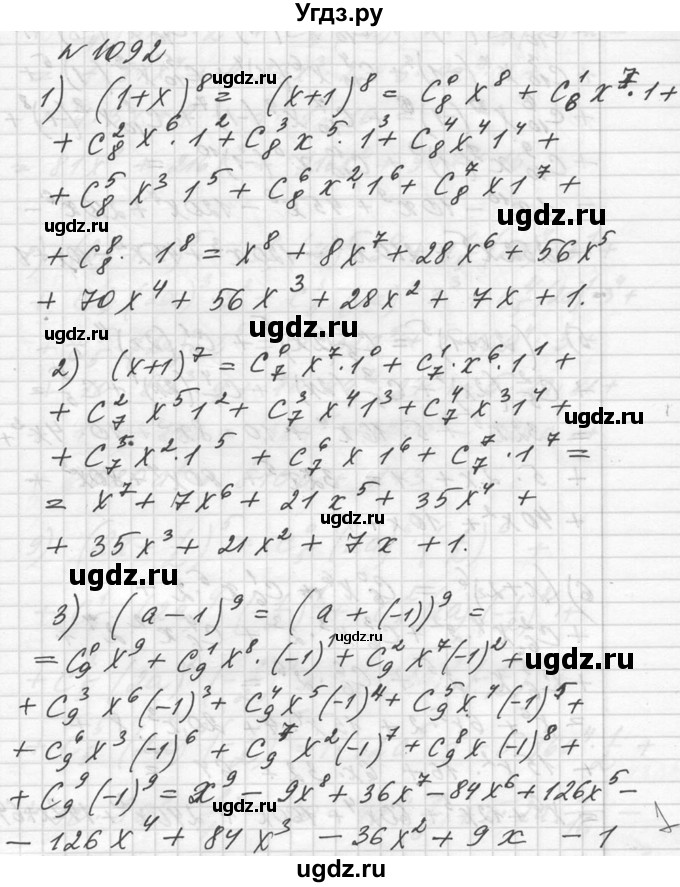 Угдз.ру
№1092
1) (1+x)^8 = (x+1)^8 = C_8^0 x^8 + C_8^1 x^7·1+
ugdz.ru
ugdz.ru
+ C_8^2 x^6·1^2 + C_8^3 x^5·1^3 + C_8^4 x^4 1^4 +
+ C_8^5 x^3 1^5 + C_8^6 x^2·1^6 + C_8^7 x 1^7 +
ugdz.ru
ugdz.ru
+ C_8^8· 1^8 = x^8 + 8x^7 + 28x^6 + 56x^5
ugdz.ru
+ 70x^4 + 56x^3 + 28x^2 + 7x + 1.
ugdz.ru
2) (x+1)^7 = C_7^0 x^7·1^0 + C_7^1·x^6·1^1 +
+ C_7^2 x^5 1^2 + C_7^3 x^4 1^3 + C_7^4 x^3 1^4 +
ugdz.ru
ugdz.ru
+ C_7^5 x^2·1^5 + C_7^6 x 1^6 + C_7^7·1^7 =
= x^7 + 7x^6 + 21x^5 + 35x^4 +
ugdz.ru
+ 35x^3 + 21x^2 + 7x + 1.
ugdz.ru
3) (a-1)^9 = (a+(-1))^9 =
ugdz.ru
= C_9^0 x^9 + C_9^1 x^8·(-1)^1 + C_9^2 x^7(-1)^2 +
ugdz.ru
+ C_9^3 x^6(-1)^3 + C_9^4 x^5(-1)^4 + C_9^5 x^4(-1)^5 +
ugdz.ru
ugdz.ru
+ C_9^6 x^3(-1)^6 + C_9^7 x^2(-1)^7 + C_9^8 x(-1)^8 +
ugdz.ru
+ C_9^9 (-1)^9 = x^9 - 9x^8 + 36x^7 - 84x^6 + 126x^5 -
- 126x^4 + 84x^3 - 36x^2 + 9x - 1
ugdz.ru
ugdz.ru